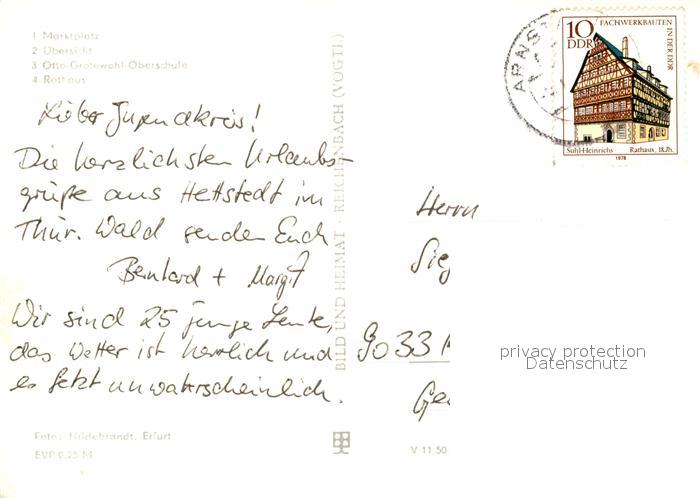 1 Marktplatz
2 Übersicht
3 Otto-Grotewohl-Oberschule
4 Rathaus
Lieber Jugendkreis!
Die herzlichsten Urlaubs-
grüße aus Hettstedt im
Thür. Wald senden Euch
Bernhard + Margit
Wir sind 25 junge Leute,
das Wetter ist herrlich und
es fetzt unwahrscheinlich.
Foto: Hildebrandt, Erfurt
EVP 0,25 M
BILD UND HEIMAT REICHENBACH (VOGTL)
V 11 50
ARNST
10
DDR
FACHWERKBAUTEN
IN DER DDR
Suhl-Heinrichs Rathaus, 18.Jh.
1978
Herrn
Sieg
9033
privacy protection
Datenschutz